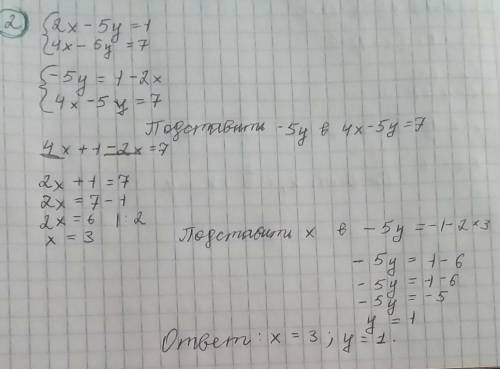 2
2x - 5y = 1
4x - 6y = 7
-5y = 1 - 2x
4x - 5y = 7
Подставити -5y в 4x-5y=7
4x + 1 = 2x = 7
2x + 1 = 7
2x = 7 - 1
2x = 6 | : 2
x = 3
Подставити x в -5y = -1 - 2×3
-5y = 1 - 6
-5y = 1 - 6
-5y = -5
y = 1
Ответ: x = 3; y = 1.